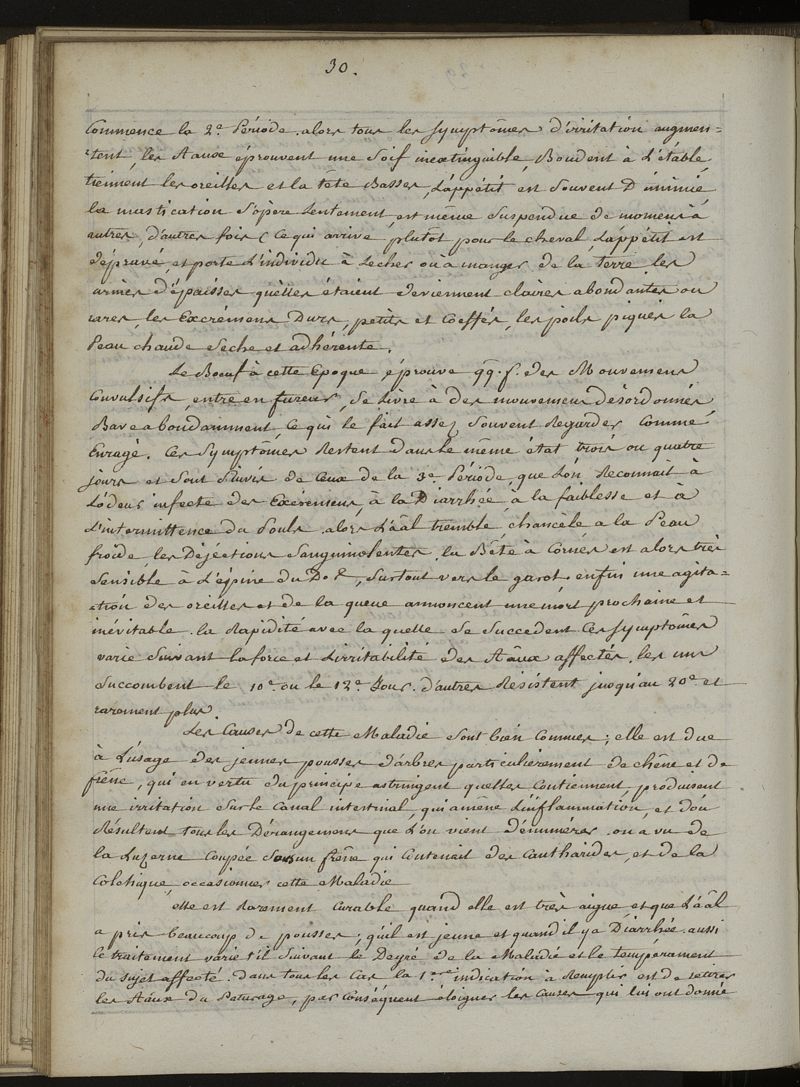 30.
Commence la 2e Période. alors tous les symptômes d'irritation augmen=
tent, les Aaux éprouvent une Soif inextinguible, Boudent à L'étable,
tiennent les oreilles et la tête Basses, L'appétit est Souvent Diminué
la mastication S'opère Lentement, est même Suspendue de momens à
autres, d'autres fois (Ce qui arrive plutot pour le cheval L'appétit est
dépravé, et porte L'individu à Lecher ou à manger de la terre, les
urines d'épaisses quelles étaient deviennent claires abondantes ou
rares, les Excrémens Durs, petits et Coeffés, les poils piqués la
Peau chaude Seche et adhérente.
Le Boeuf à cette Epoque éprouve qq. f. des Mouvemens
Convulsifs, entre en fureur, Se Livre à des mouvemens désordonnés
Bave abondamment Ce qui le fait assez Souvent Regarder Comme
Enragé. Ces Symptômes Restent dans le même état trois ou quatre
jours et Sont Suivis de Ceux de la 3e Période, que L'on Reconnait à
L'odeur infecte des Excrémens, à la Diarrhée, à la faiblesse et à
L'intermittence du Pouls. alors L'aâl tremble, chancèle, a la Peau
froide, les Déjéctions Sanguinolentes, la Bête à Cornes est alors très
Sensible à L'épine du Dos, Surtout vers le garot. enfin une agita=
=tion des oreilles et de la queue annoncent une mort prochaine et
inévitable. la Rapidité avec la quelle Se Succedent Ces Symptômes
varie Suivant la force et L'irritabilité des Aâux affectés. les uns
Succombent le 10e ou le 12e Jour. d'autres Résistent jusqu'au 20e et
rarement plus.
Les Causes de cette Maladie Sont bien Connues; elle est due
à L'usage des jeunes pousses d'arbres particulièrement de chêne et de
frêne, qui en vertu du principe astringent quelles Contiennent, produisent
une irritation Sur le Canal intestinal, qui amène L'inflammation, et d'où
Résultent tous les Dérangemens que L'on vient d'énumérer. on a vu de
la Luzerne Coupée Sous un frêne qui Contenait des Cantharides, et de la
Colchique, occasionner cette Maladie
Elle est Rarement Curable quand elle est très aigue et que L'aâl
a pris beaucoup de pousses; qu'il est jeune et quand il y a Diarrhée. aussi
le traitement varie t'il Suivant le Degré de la Maladie et le tempérament
du Sujet affecté. dans tous les Cas la 1ere indication à Remplir est de retirer
les Aâux du Paturage, par Conséquent éloigner les Causes qui lui ont donné